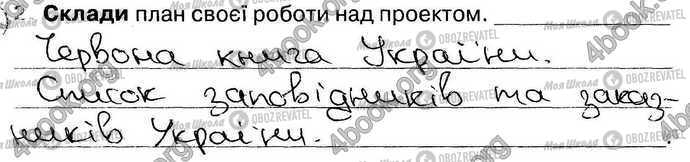 Склади план своєї роботи над проектом.
Червона книга України.
Список заповідників та заказ-
ників України.